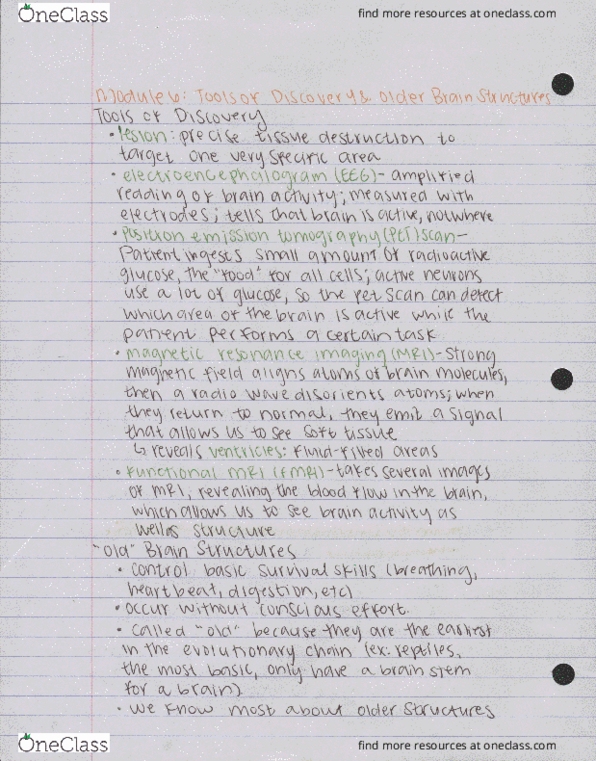 OneClass
find more resources at oneclass.com
Module 6: Tools of Discovery & Older Brain Structures
Tools of Discovery
• lesion: precise tissue destruction to
target one very specific area
• electroencephalogram (EEG)- amplified
reading of brain activity; measured with
electrodes; tells that brain is active, not where
• Positron emission tomography (PET) scan-
Patient ingests small amount of radioactive
glucose, the "food" for all cells; active neurons
use a lot of glucose, so the pet scan can detect
which area of the brain is active while the
patient performs a certain task
• magnetic resonance imaging (MRI)- strong
magnetic field aligns atoms of brain molecules,
then a radio wave disorients atoms; when
they return to normal, they emit a signal
that allows us to see soft tissue
↳ reveals ventricles: fluid-filled areas
• functional MRI (fMRI)- takes several images
of MRI, revealing the blood flow in the brain,
which allows us to see brain activity as
well as structure
"Old" Brain Structures
• control basic survival skills (breathing,
heartbeat, digestion, etc)
• occur without conscious effort.
• called "old" because they are the earliest
in the evolutionary chain (ex: reptiles,
the most basic, only have a brain stem
for a brain)
• we know most about older structures
OneClass
find more resources at oneclass.com